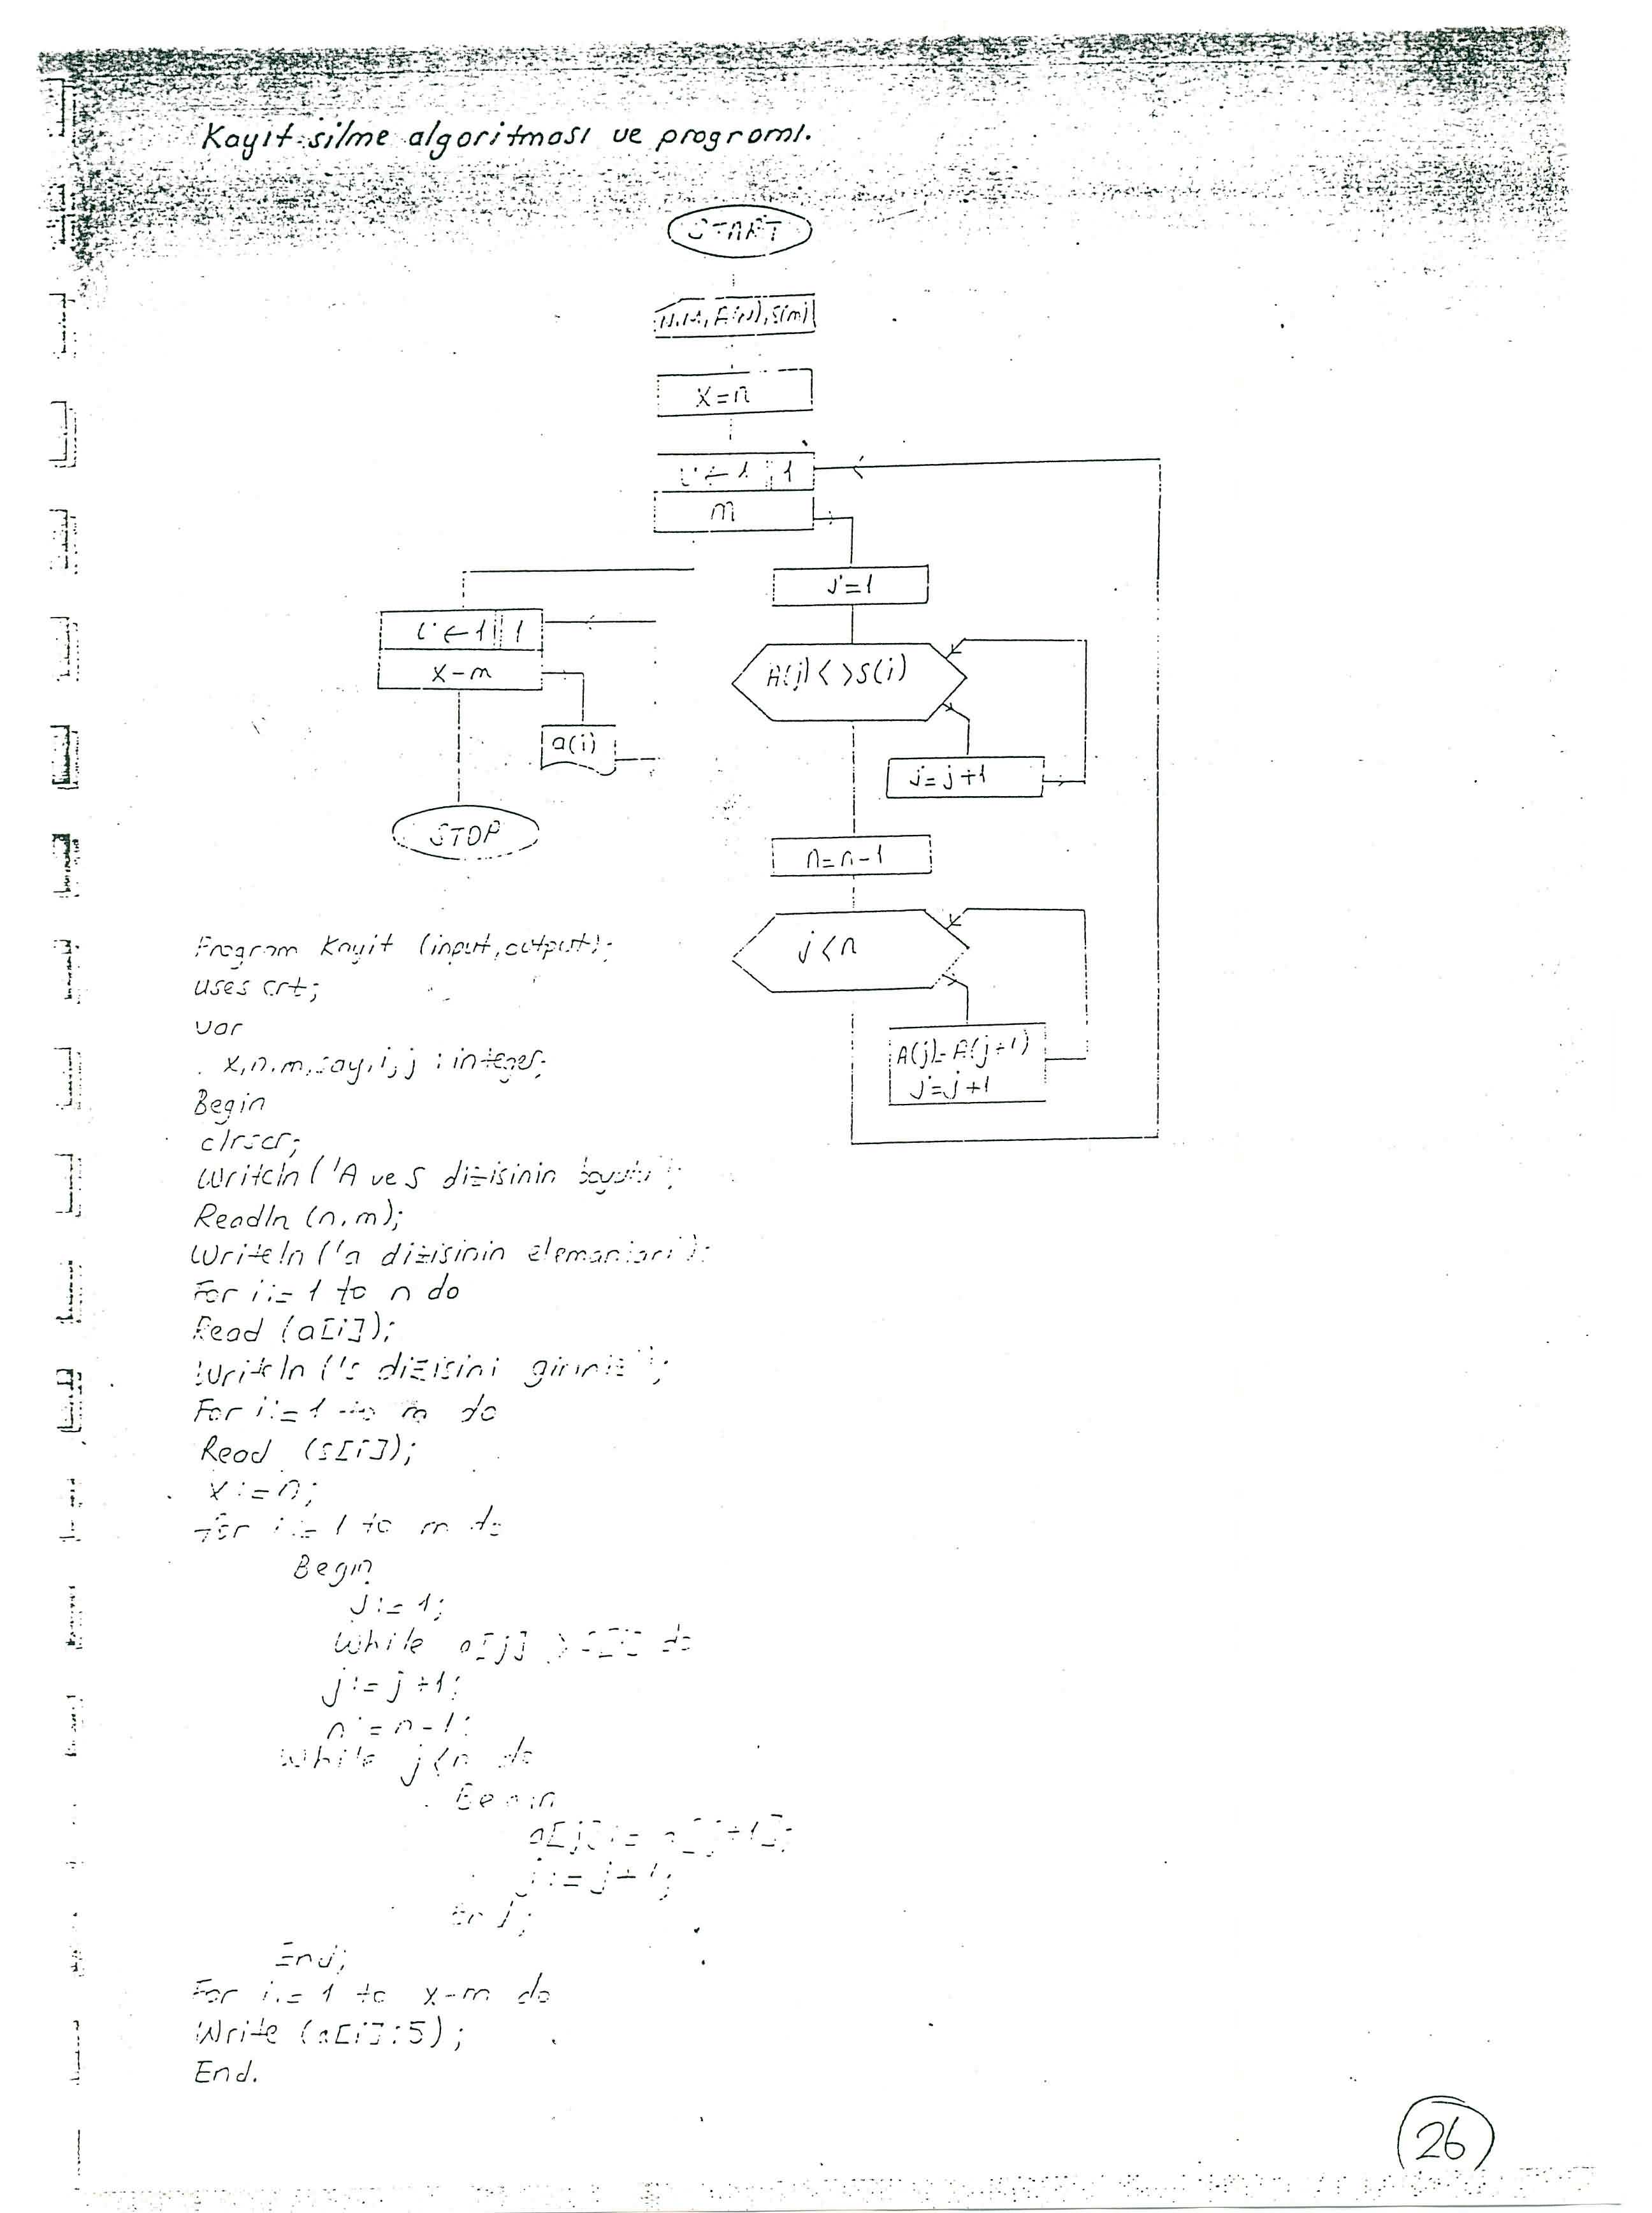 Kayıt silme algoritması ve programı.
START
N,M,A(N),S(m)
x=n
i←1 1
m
j=1
i←1 1
A(j)<>S(i)
x-m
a(i)
j=j+1
STOP
n=n-1
j<n
A(j)=A(j+1)
j=j+1
Program Kayit (input,output);
uses crt;
var
x,n,m,say,i,j : integer;
Begin
clrscr;
Writeln ('A ve S dizisinin boyutu');
Readln (n,m);
Writeln ('a dizisinin elemanlari');
For i:=1 to n do
Read (a[i]);
Writeln ('s dizisini giriniz');
For i:=1 to m do
Read (s[i]);
x:=n;
for i:=1 to m do
Begin
j:=1;
While a[j] > do
j:=j+1;
n:=n-1;
While j<n do
Begin
a[j]:=a[j+1];
j:=j+1;
End;
End;
For i:=1 to x-m do
Write (a[i]:5);
End.
26